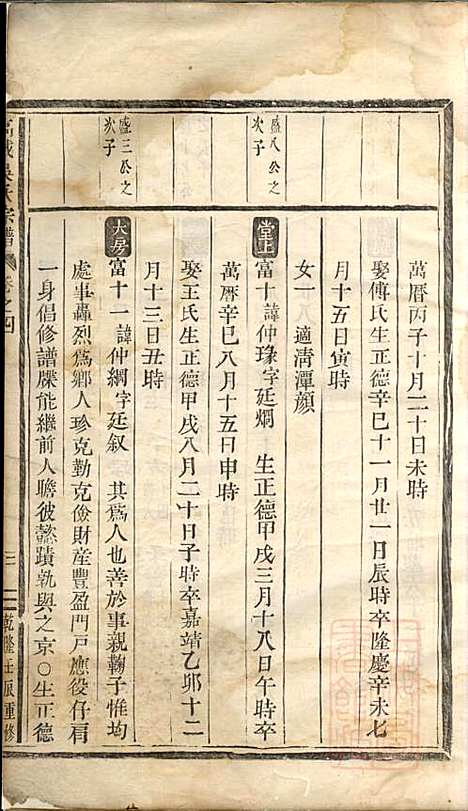 萬曆丙子十月二十日未時
娶傅氏生正德辛巳十一月廿一日辰時卒隆慶辛未七
月十五日寅時
女一 適清潭顏
盛八公之
次子
堂上 富十諱仲瑑字廷烱 生正德甲戌三月十八日午時卒
萬曆辛巳八月十五日申時
娶王氏生正德甲戌八月二十日子時卒嘉靖乙卯十二
月十三日丑時
盛三公之
次子
大房 富十一諱仲綱字廷叙 其為人也善於事親鞠子惟均
處事轟烈為鄉人珍克勤克儉財産豐盈門戶應役仔肩
一身倡修譜牒能繼前人瞻彼懿蹟孰與之京○生正德
氏宗譜 卷之四
乾隆壬辰重修